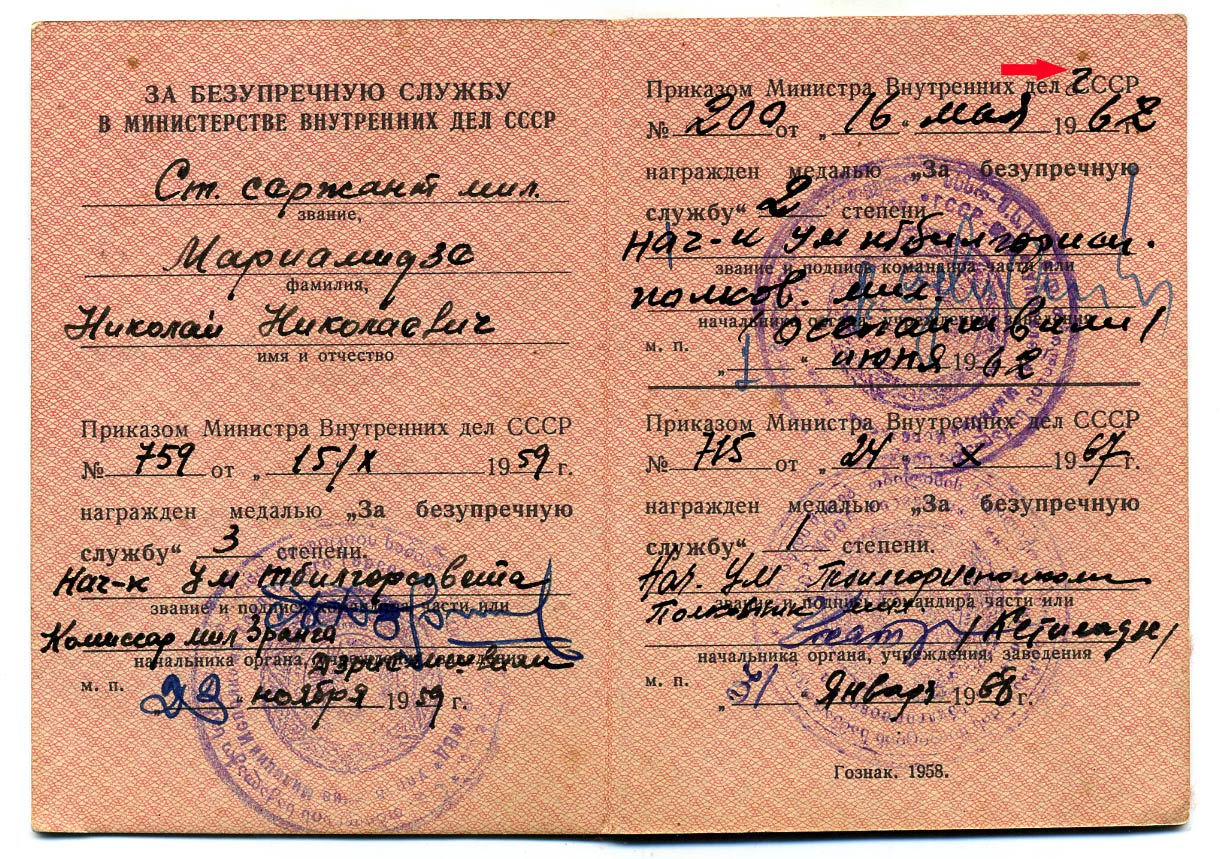 ЗА БЕЗУПРЕЧНУЮ СЛУЖБУ
В МИНИСТЕРСТВЕ ВНУТРЕННИХ ДЕЛ СССР
Ст. сержант мил.
звание,
Мариамидзе
фамилия,
Николай Николаевич
имя и отчество
Приказом Министра Внутренних дел СССР
№ 759 от „ 15/X 1959 г.
награжден медалью „За безупречную
службу“ 3 степени.
Нач-к УМ Тбилгорсовета
звание и подпись командира части или
Комиссар мил 3 ранга
начальника органа, учреждения, заведения
м. п. „23“ ноября 1959 г.
Г
Приказом Министра Внутренних дел СССР
№ 200 от „16“ мая 1962 г.
награжден медалью „За безупречную
службу“ 2 степени.
Нач-к УМ
звание и подпись командира части или
полков. мил.
начальника органа, учреждения, заведения
м. п.
„1“ июня 1962
Приказом Министра Внутренних дел СССР
№ 715 от „24“ X 1967 г.
награжден медалью „За безупречную
службу“ 1 степени.
Нач. УМ Тбилгорисполкома
звание и подпись командира части или
Полковник
начальника органа, учреждения, заведения
м. п. „31“ января 1968 г.
Гознак. 1958.